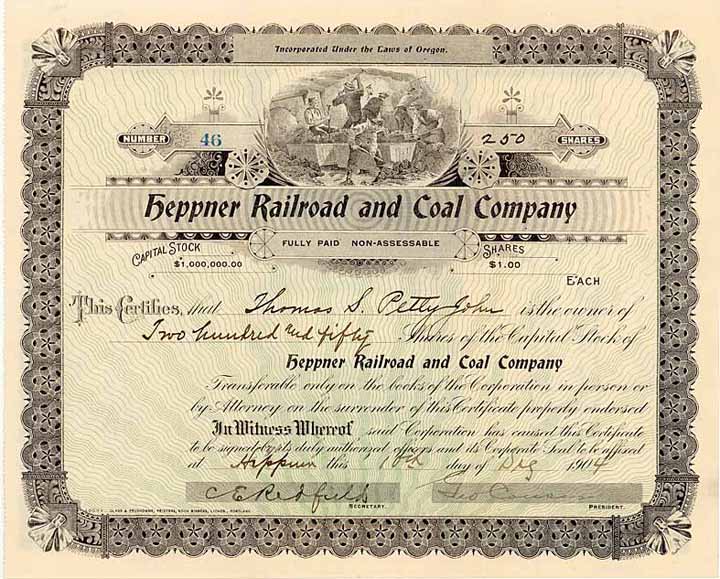 Incorporated Under the Laws of Oregon.
NUMBER 46 250 SHARES
Heppner Railroad and Coal Company
FULLY PAID NON-ASSESSABLE
CAPITAL STOCK SHARES
$1,000,000.00 $1.00
EACH
This Certifies, that Thomas S. Petty John is the owner of
Two hundred and fifty Shares of the Capital Stock of
Heppner Railroad and Coal Company
Transferable only on the books of the Corporation in person or
by Attorney on the surrender of this Certificate properly endorsed
In Witness Whereof said Corporation has caused this Certificate
to be signed by its duly authorized officers and its Corporate Seal to be affixed
at Heppner this day of 1904
C E Redfield Geo
SECRETARY. PRESIDENT.
GLASS & PRUDHOMME, PRINTERS, BOOK BINDERS, LITHOS., PORTLAND.